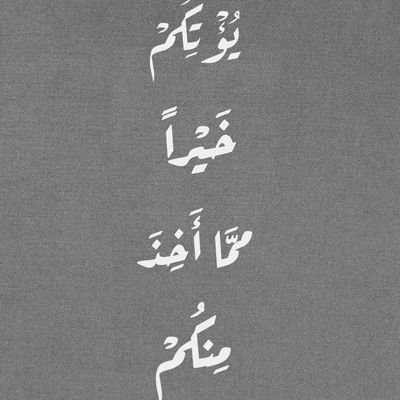 يُؤْتِكُمْ
خَيْراً
مِمَّا أَخِذَ
مِنكُمْ